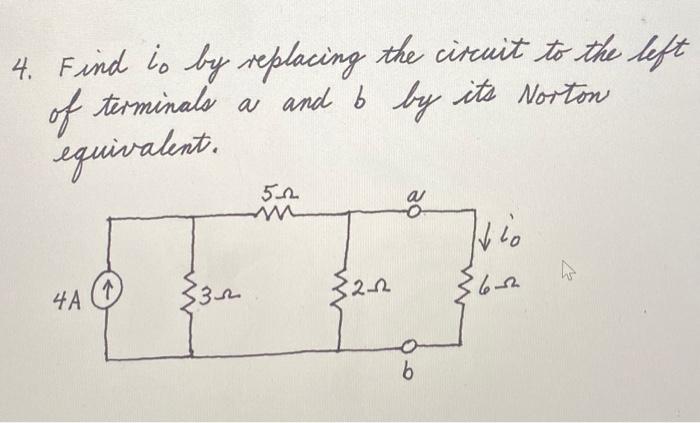 4. Find io by replacing the circuit to the left
of terminals a and b by its Norton
equivalent.
5Ω
a
↓ io
4A
3Ω
2Ω
6Ω
b